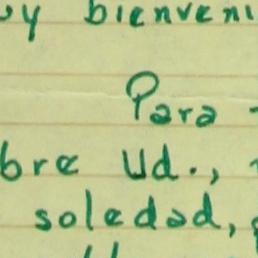 y bienveni
Para
bre Ud.,
soledad,